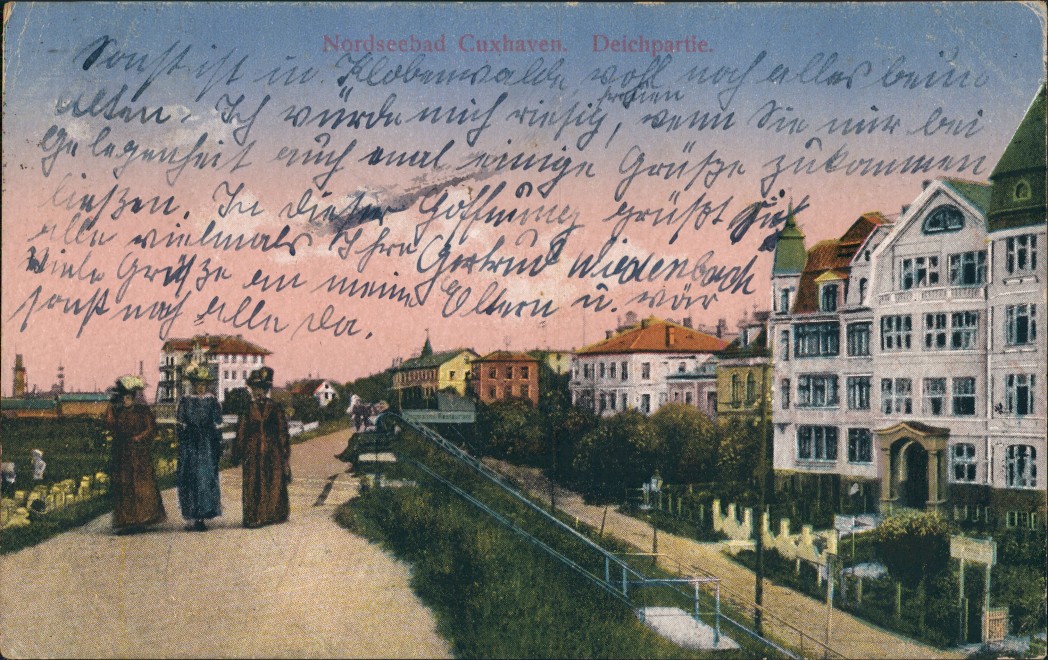 Nordseebad Cuxhaven. Deichpartie.
Sonst ist in Klobenwalde wohl noch alles beim
alten. Ich würde mich riesig freuen, wenn Sie mir bei
Gelegenheit auch mal einige Grüße zukommen
ließen. In dieser Hoffnung grüßt Sie
alle vielmals Ihre Gertrud Wiedenbach
Viele Grüße an meine Eltern u. wär
sonst noch alle da.